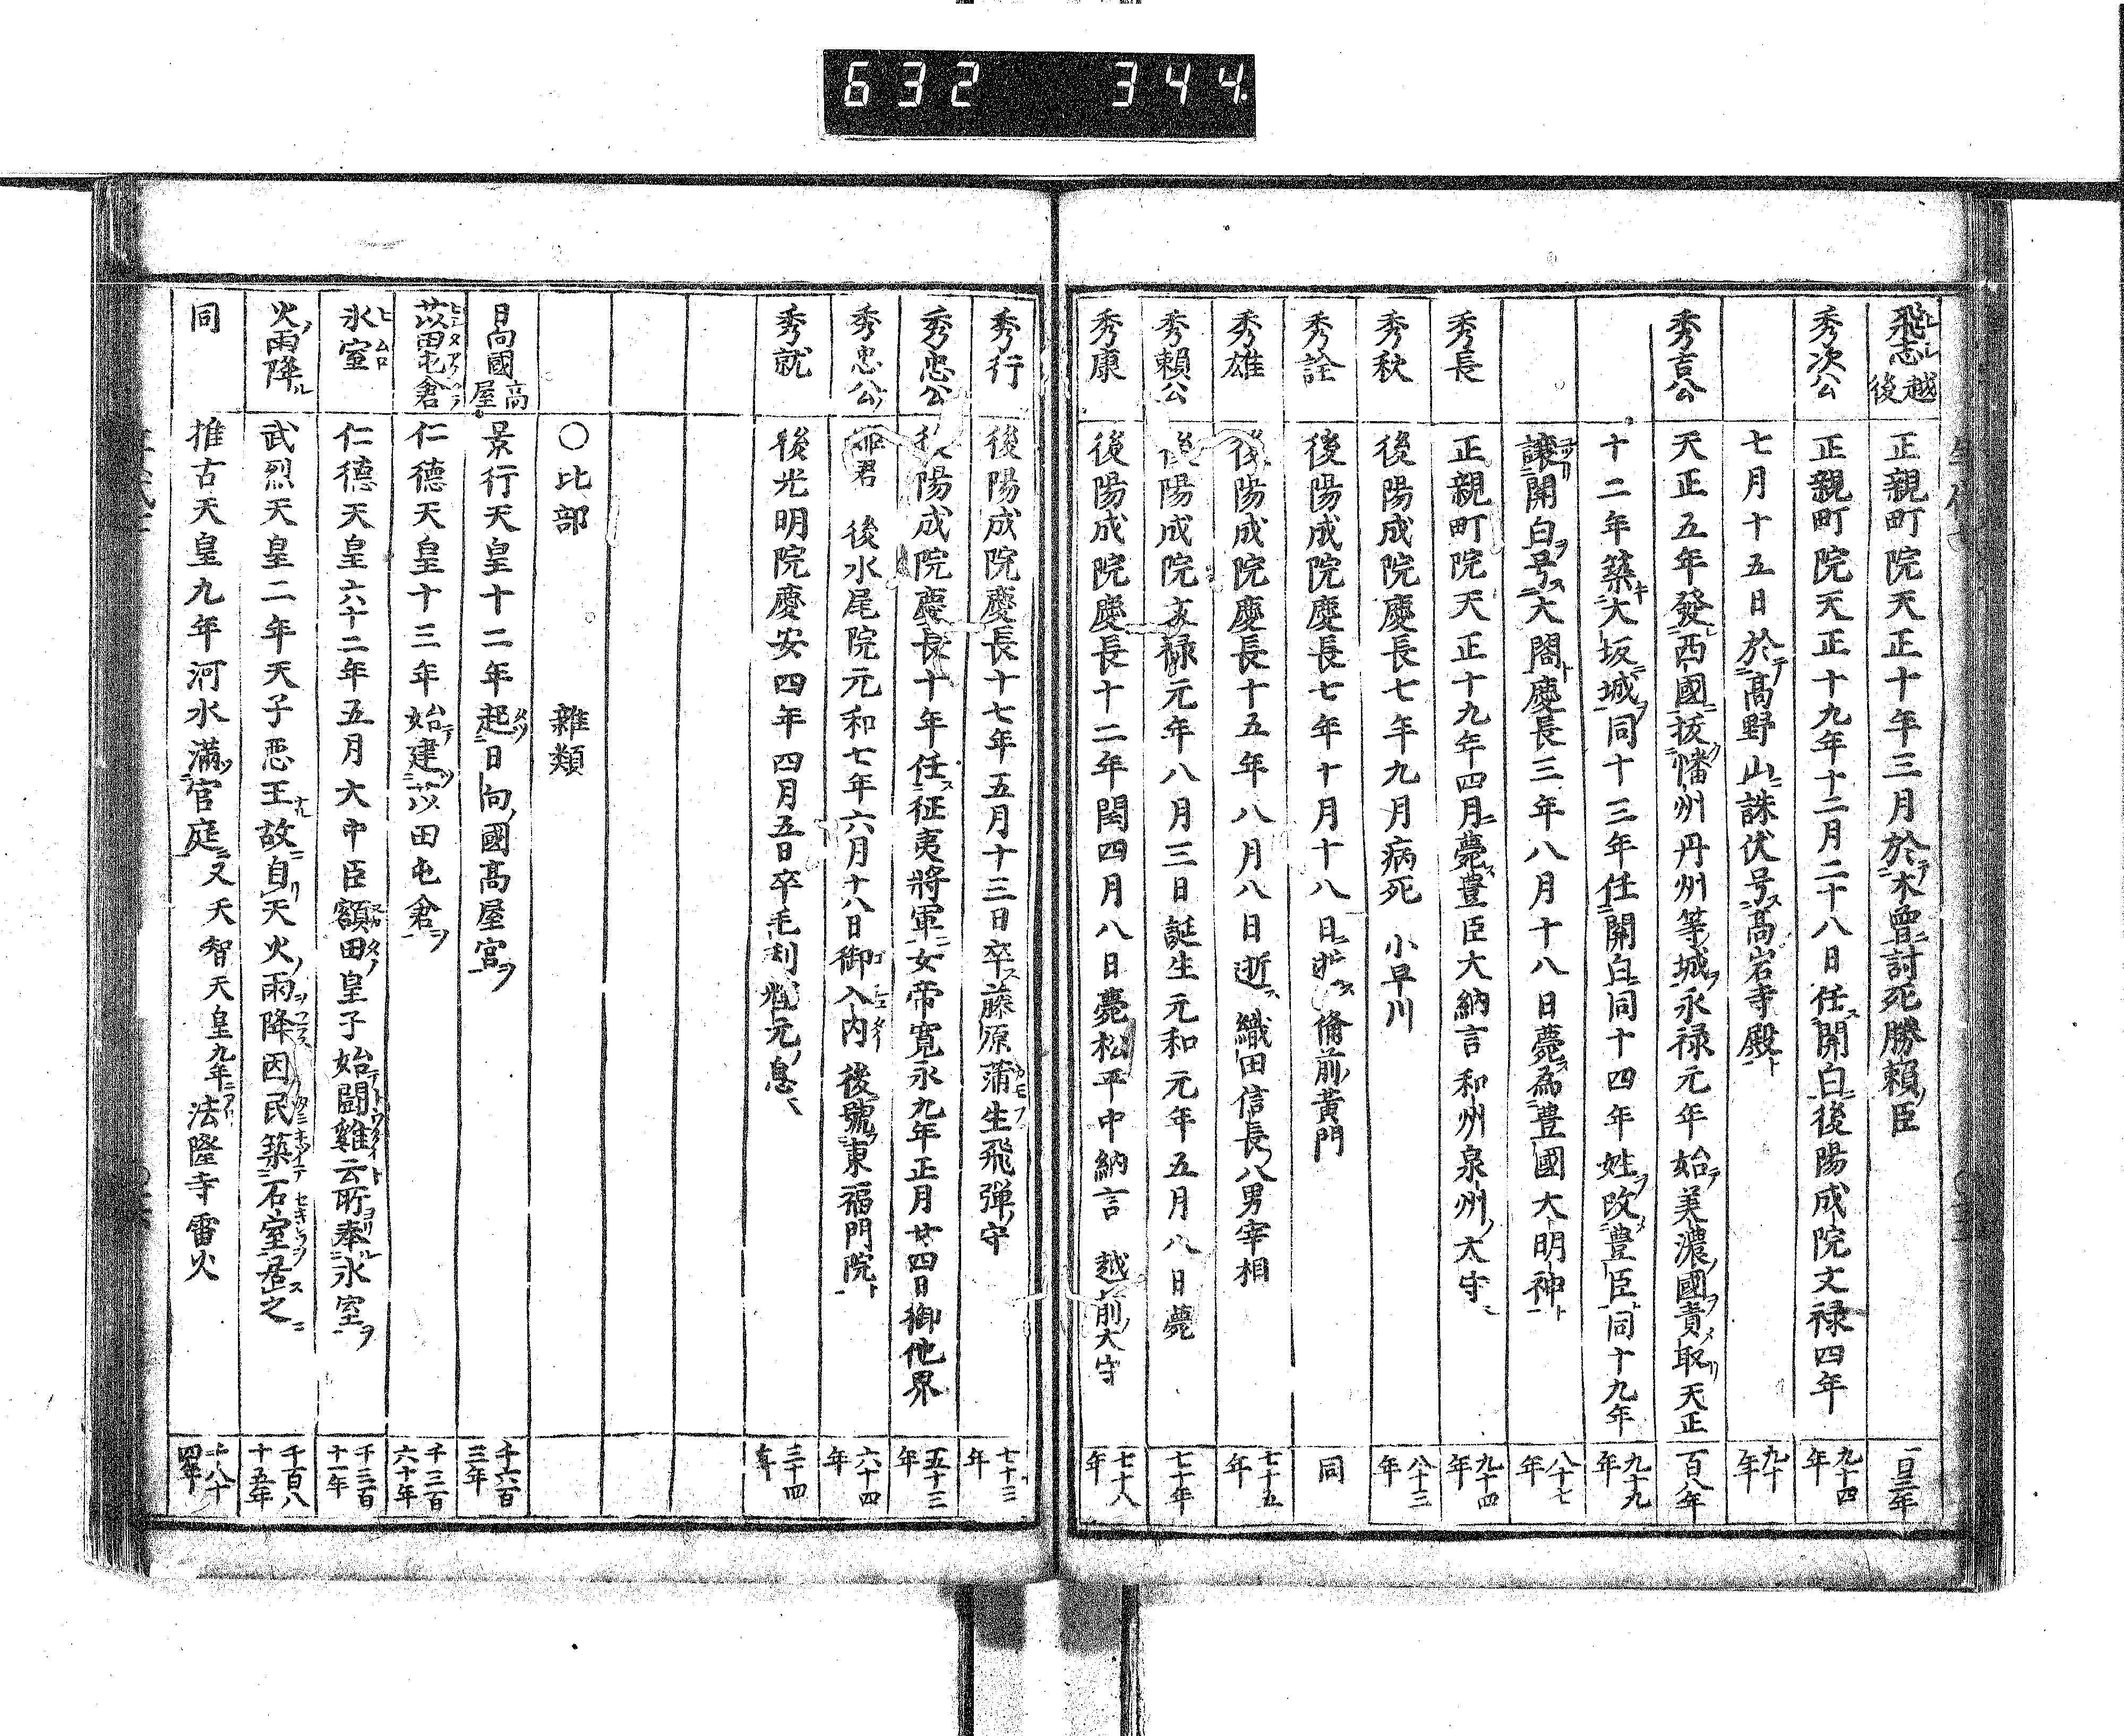 632 344
飛志 越後 正親町院天正十年三月於木曾討死勝頼臣 一百三年
秀次公 正親町院天正十九年十二月二十八日任開白後陽成院文禄四年 九十四年
七月十五日於高野山誅伏号高岩寺殿 九十年
秀吉公 天正五年發西國抜幡州丹州等城永禄元年始美濃國責取天正 百八年
十二年築大坂城同十三年任開白同十四年姓改豊臣同十九年 九十九年
譲開白号大閤慶長三年八月十八日薨為豊國大明神 八十七年
秀長 正親町院天正十九年四月薨豊臣大納言和州泉州大守 九十四年
秀秋 後陽成院慶長七年九月病死 小早川 八十三年
秀詮 後陽成院慶長七年十月十八日逝 備前黄門 同
秀雄 後陽成院慶長十五年八月八日逝 織田信長八男宰相 七十五年
秀頼公 後陽成院文禄元年八月三日誕生元和元年五月八日薨 七十年
秀康 後陽成院慶長十二年閏四月八日薨松平中納言 越前大守 七十八年
秀行 後陽成院慶長十七年五月十三日卒藤原蒲生飛弾守 七十三年
秀忠公 後陽成院慶長十年任征夷將軍女帝寛永九年正月廿四日御他界 五十三年
秀忠公 姫君 後水尾院元和七年六月十八日御入内 後號東福門院 六十四年
秀就 後光明院慶安四年四月五日卒毛利輝元息 三十四年
〇比部 雜類
日向國高屋 景行天皇十二年起日向國高屋宮 千六百三年
苡田屯倉 仁德天皇十三年始建苡田屯倉 千三百六十年
氷室 仁德天皇六十二年五月大中臣額田皇子始闘雞云所奉氷室 千三百十一年
火雨降 武烈天皇二年天子惡王故自天火雨降因民築石室居之 千百八十五年
同 推古天皇九年河水滿官庭又天智天皇九年法隆寺雷火 千八十四年